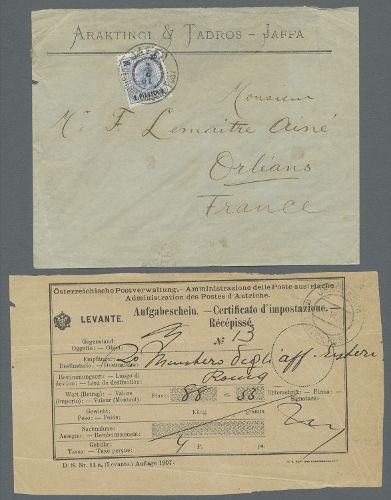 ARAKTINGI & TADROS - JAFFA
JAFFA
1 PIASTER
Monsieur
F. Lemaitre Ainé
Orléans
France
Österreichische Postverwaltung. — Amministrazione delle Poste austriache
Administration des Postes d'Autriche.
LEVANTE.
Aufgabeschein. — Certificato d'impostazione. —
Récépissé
№ 13
Gegenstand:
Oggetto: — Objet:
Empfänger:
Destinatario: — Destinataire:
Ministero degli aff. Esteri
Bestimmungsort: — Luogo di
destino: — Lieu de destination:
Roma
Wert (Betrag): — Valore
(importo): — Valeur (Montant):
Francs
88
33
Unterschrift: — Firma: —
Signature:
Gewicht:
Peso: — Poids:
Kilog.
gramm.
Nachnahme:
Assegno: — Remboursement:
Gebühr:
Tassa: — Taxe perçue:
4 P.
pa.
D. S. Nr. 11 a. (Levante.) Auflage 1907.